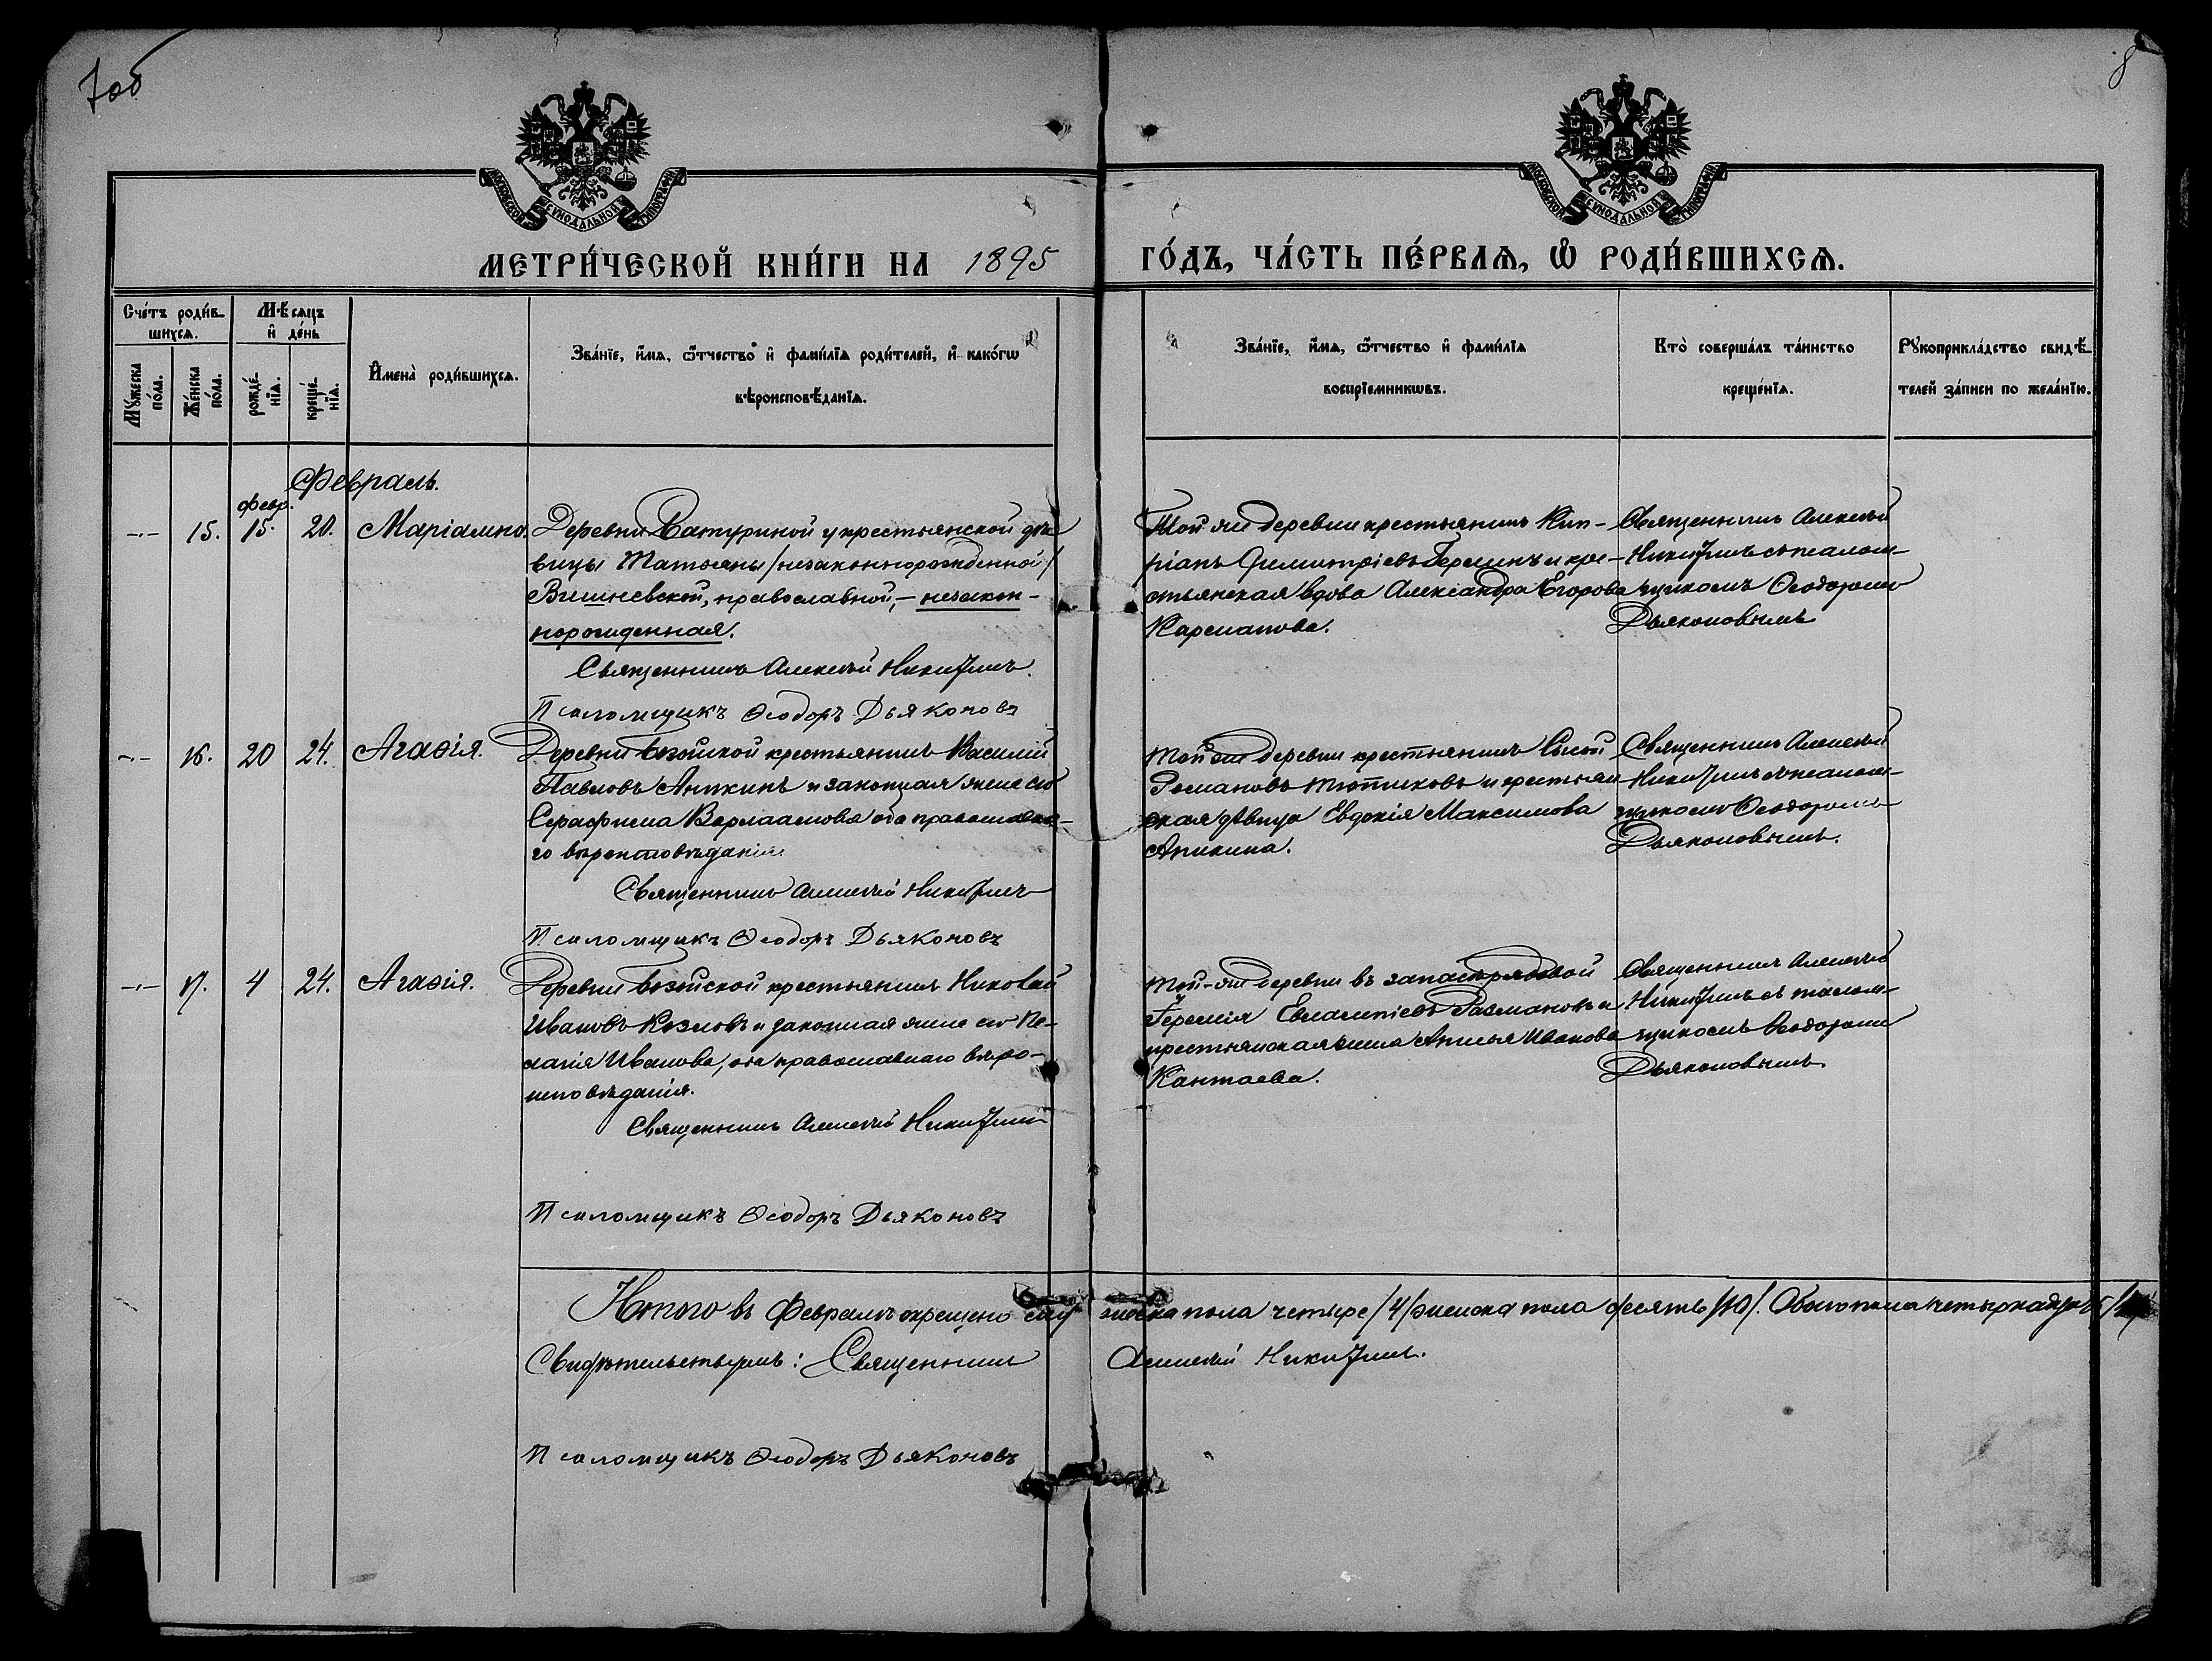 7об
8
МОСКОВСКОЙ СѴНОДАЛЬНОЙ ТИПОГРАФІИ
МОСКОВСКОЙ СѴНОДАЛЬНОЙ ТИПОГРАФІИ
МЕТРИ́ЧЕСКОЙ КНИ́ГИ НА 1895 ГО́ДЪ, ЧА́СТЬ ПЕ́РВАѦ, Ѡ РОДИ́ВШИХСѦ.
Счетъ роди́в-
шихсѧ.
Мѣсѧцъ
и день
Мꙋжеска
по́ла.
Же́нска
по́ла.
рожде́-
нїѧ.
креще́-
нїѧ.
Имена̀ роди́вшихсѧ.
Зва́нїе, и́мѧ, ѻ҆́тчество и фами́лїѧ роди́телей, и како́гѡ
вѣроисповѣ́данїѧ.
Зва́нїе, и́мѧ, ѻ҆́тчество и фами́лїѧ
воспрїе́мникѡвъ.
Кто̀ соверша́лъ та́инство
креще́нїѧ.
Рꙋкоприкла́дство свидѣ́-
телей за́писи по жела́нїю.
Февраль.
февр.
-"- 15. 15. 20. Маріамна.
Деревни Батуриной у крестьянской дѣ-
вицы Татьяны /незаконнорожденной/
Вишневской, православной, - незакон-
норожденная.
Священникъ Алексѣй Никитинъ.
Псаломщикъ Ѳеодоръ Дьяконовъ
Той же деревни крестьянинъ Кип-
ріанъ Димитріевъ и кре-
стьянская вдова Александра Егорова
Священникъ Алексѣй
Никитинъ съ псалом-
щикомъ Ѳеодоромъ
Дьяконовымъ
-"- 16. 20 24. Агаѳія.
Деревни крестьянинъ Василій
Павловъ Аникинъ и законная жена его
Серафима Варлаамова оба православна-
го вѣроисповѣданія
Священникъ Алексѣй Никитинъ
Псаломщикъ Ѳеодоръ Дьяконовъ
Той же деревни крестьянинъ
Романовъ и крестьян-
ская дѣвица Евдокія Максимова
Аникина.
Священникъ Алексѣй
Никитинъ съ псалом-
щикомъ Ѳеодоромъ
Дьяконовымъ.
-"- 17. 4 24. Агаѳія.
Деревни крестьянинъ Николай
Ивановъ Козловъ и законная жена его Пе-
лагія Иванова, оба православнаго вѣро-
исповѣданія.
Священникъ Алексѣй Никитинъ
Псаломщикъ Ѳеодоръ Дьяконовъ
Той-же деревни въ запасѣ рядовой
Евлампіевъ и
крестьянская жена Анисья Иванова
Кантаева.
Священникъ Алексѣй
Никитинъ съ псалом-
щикомъ Ѳеодоромъ
Дьяконовымъ
Итого въ Февралѣ окрещено мужеска пола четыре /4/ женска пола десять /10/. Обоего пола четырнадцать
Свидѣтельствуемъ: Священникъ Алексѣй Никитинъ.
Псаломщикъ Ѳеодоръ Дьяконовъ